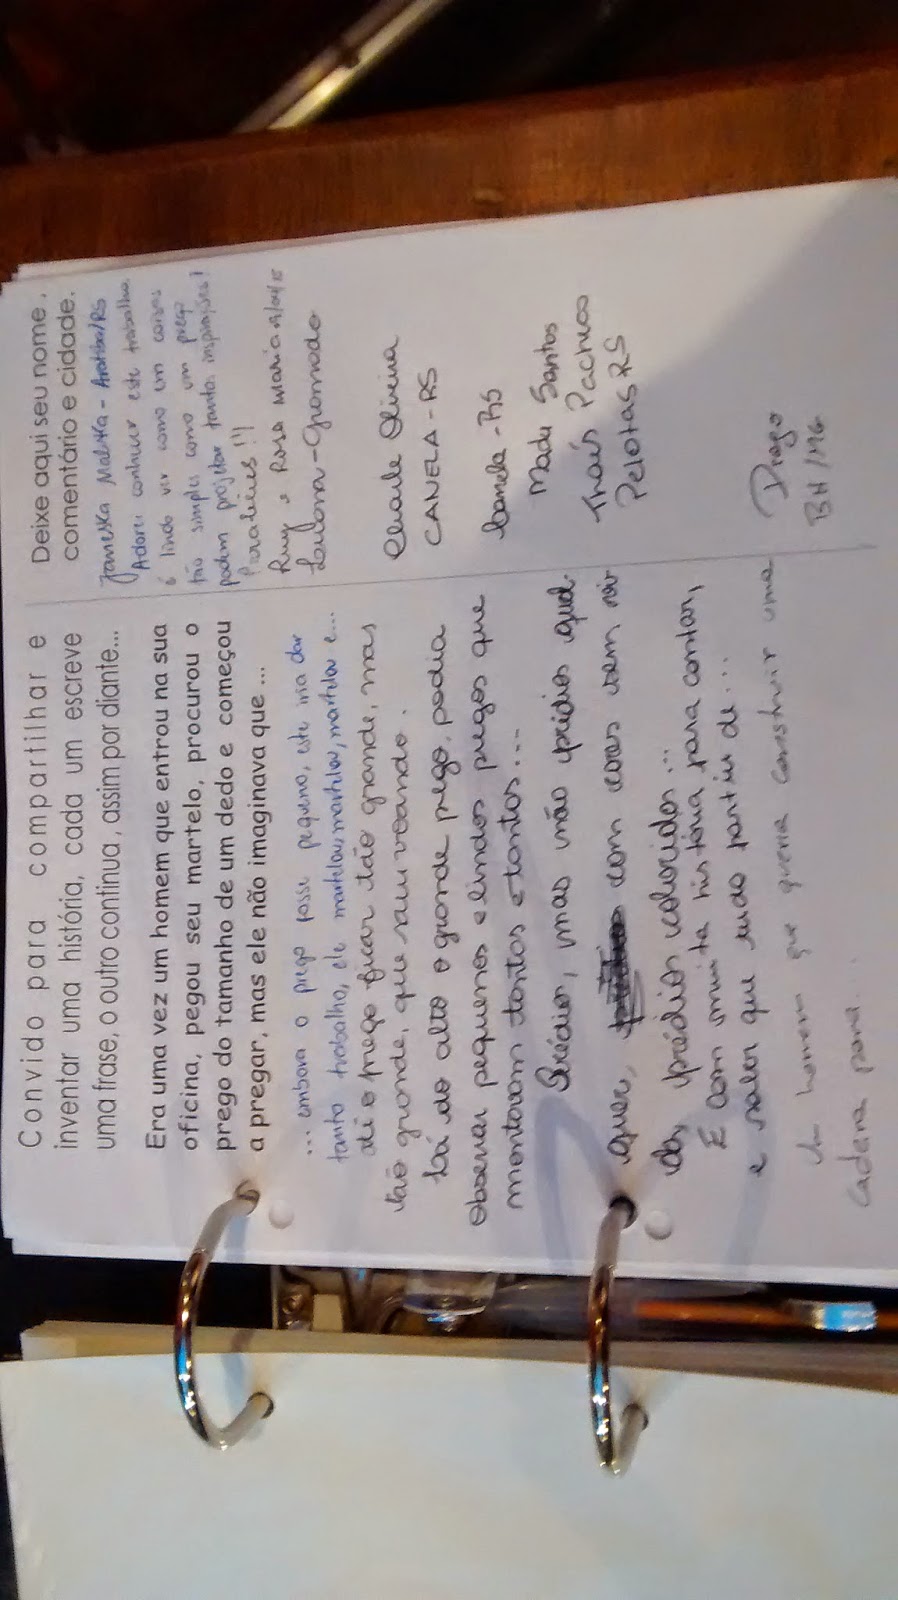 Convido para compartilhar e
inventar uma história, cada um escreve
uma frase, o outro continua, assim por diante...
Era uma vez um homem que entrou na sua
oficina, pegou seu martelo, procurou o
prego do tamanho de um dedo e começou
a pregar, mas ele não imaginava que ...
... embora o prego fosse pequeno, este iria dar
tanto trabalho, ele martelou, martelou, martelou e...
até o prego ficar tão grande, mas
tão grande, que saiu voando.
Lá do alto o grande prego, podia
observar pequenos e lindos pregos que
montavam tantos e tantos...
Prédios, mas não prédios qual-
quer, com cores sem
prédios coloridos...
E com muita história para contar,
e saber que tudo partiu de...
Um homem que queria construir uma
cadeira para...
Deixe aqui seu nome,
comentário e cidade.
Adorei conhecer este trabalho
é lindo ver como em coisas
tão simples como um prego
podem projetar tantas inspirações!
Parabéns!!!
Ruy e Rosa Maria
Gramado
Oliveira
CANELA - RS
Canela - RS
Madu Santos
Thaís Pacheco
Pelotas RS
Diego
BH/MG